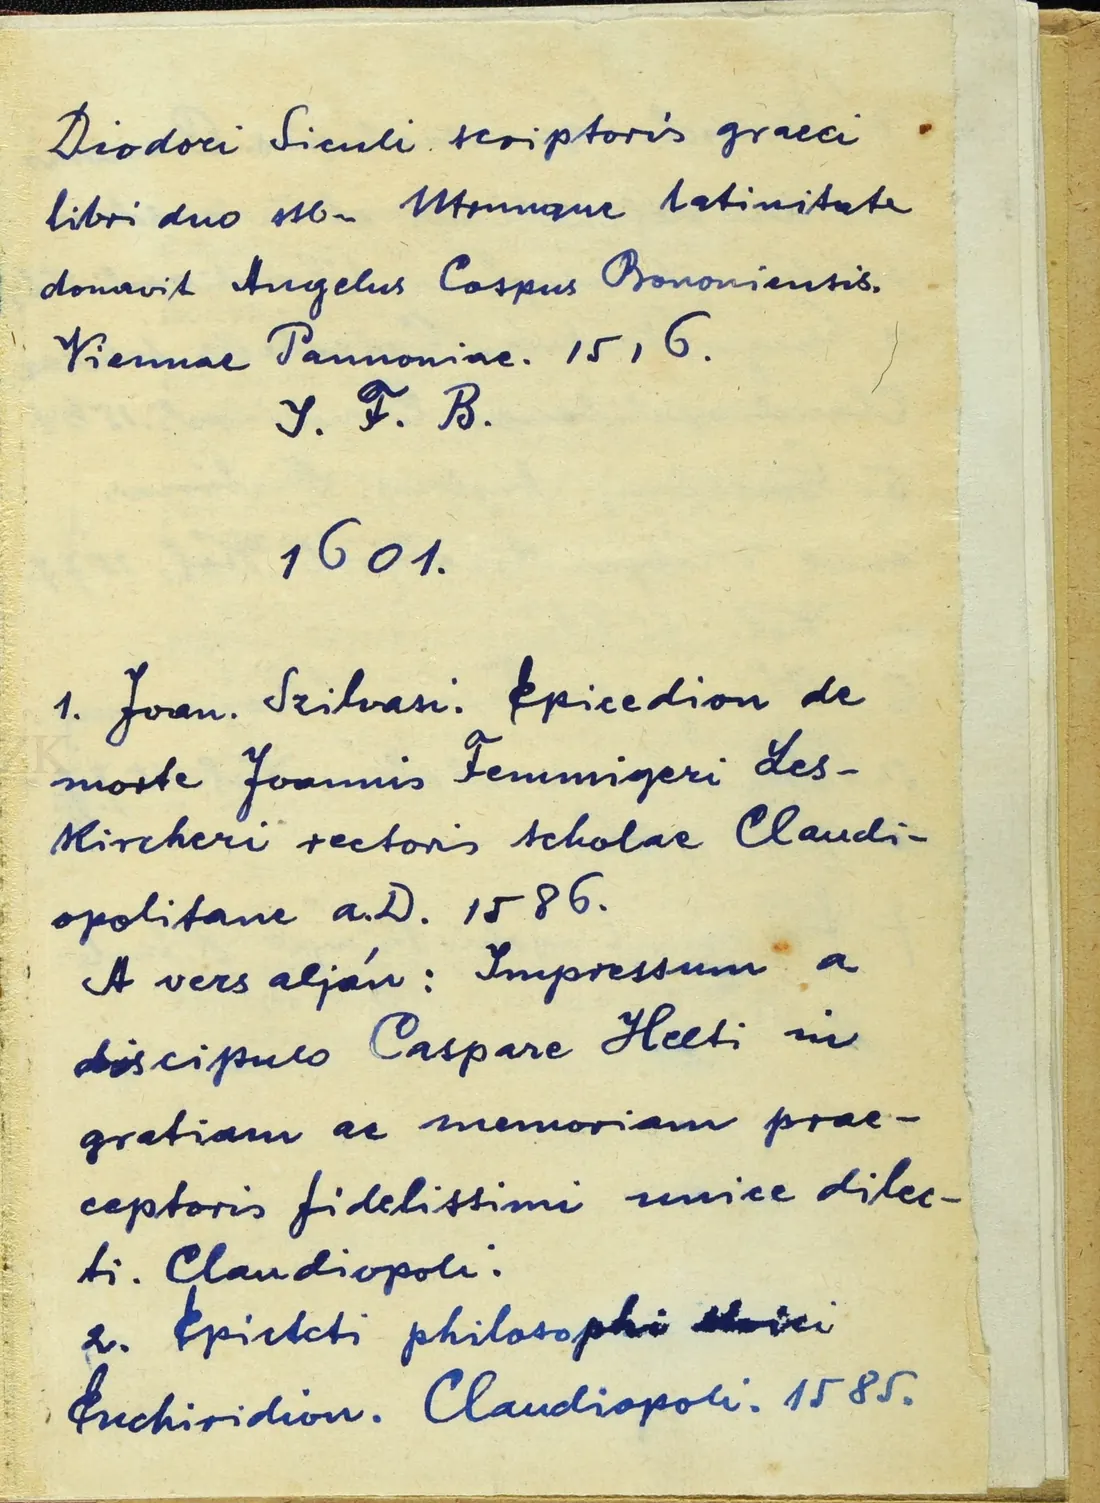 Diodori Siculi scriptoris graeci
libri duo Utrumque latinitate
donavit Angelus Cospus Bononiensis.
Viennae Pannoniae. 1516.
I. F. B.
1601.
1. Joan. Szilvasi. Epicedion de
morte Joannis Femmigeri Les-
kircheri rectoris scholae Claudi-
opolitane a.D. 1586.
A vers alján: Impressum a
discipulo Caspare Helti in
gratiam ac memoriam prae-
ceptoris fidelissimi unice dilec-
ti. Claudiopoli.
2. Epicteti philosophi stoici
Enchiridion. Claudiopoli. 1585.